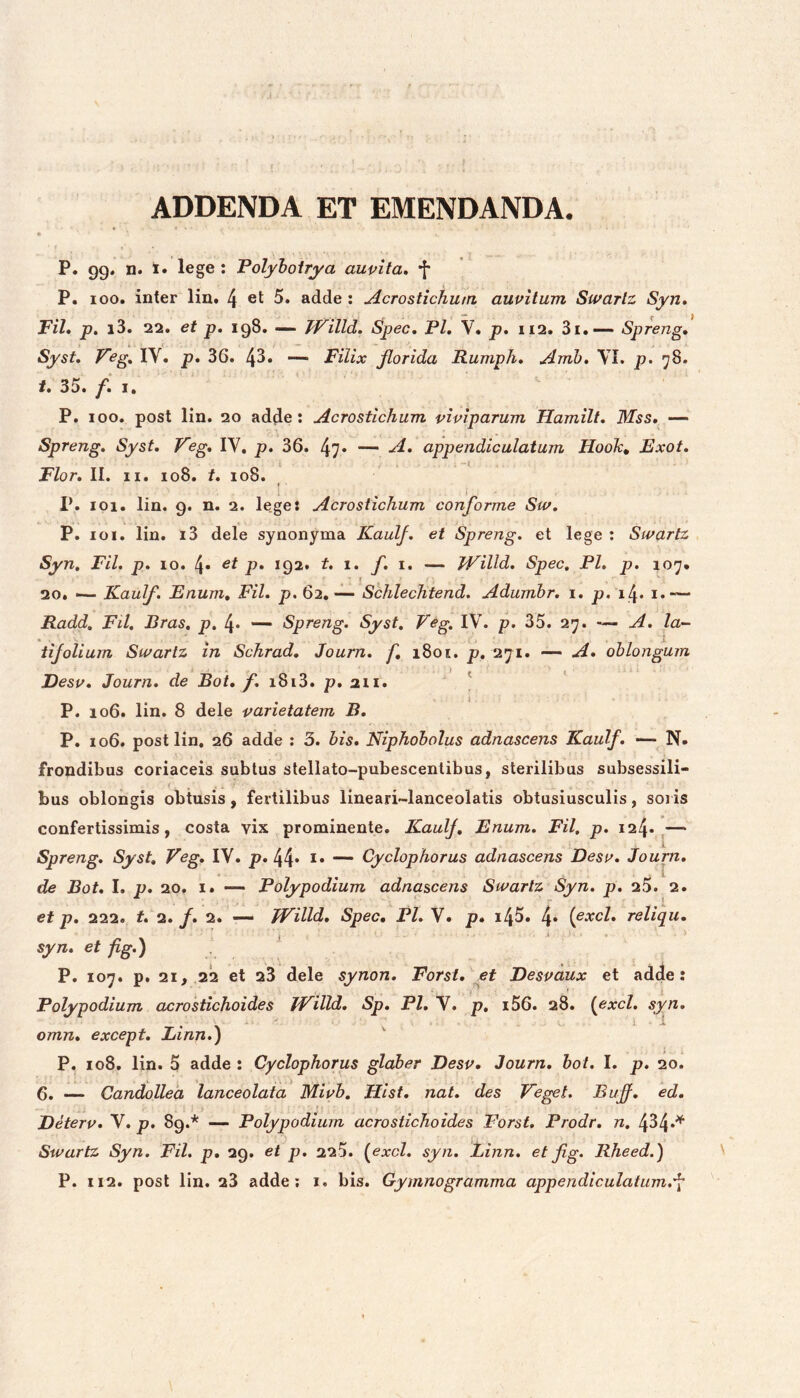 ADDENDA ET EMENDANDA.
P. 99. n. 1. lege : Polybotrya auvita. †
P. 100. inter lin. 4 et 5. adde : Acrostichum auvitum Swartz Syn.
Fil. p. 13. 22. et p. 198. — Willd. Spec. Pl. V. p. 112. 31. — Spreng.
Syst. Veg. IV. p. 36. 43. — Filix florida Rumph. Amb. VI. p. 78.
t. 35. f. 1.
P. 100. post lin. 20 adde : Acrostichum viviparum Hamilt. Mss. —
Spreng. Syst. Veg. IV. p. 36. 47. — A. appendiculatum Hook. Exot.
Flor. II. 11. 108. t. 108.
P. 101. lin. 9. n. 2. lege: Acrostichum conforme Sw.
P. 101. lin. 13 dele synonyma Kaulf. et Spreng. et lege : Swartz
Syn. Fil. p. 10. 4. et p. 192. t. 1. f. 1. — Willd. Spec. Pl. p. 107.
20. — Kaulf. Enum. Fil. p. 62. — Schlechtend. Adumbr. 1. p. 14. 1. —
Radd. Fil. Bras. p. 4. — Spreng. Syst. Veg. IV. p. 35. 27. — A. la-
tifolium Swartz in Schrad. Journ. f. 1801. p. 271. — A. oblongum
Desv. Journ. de Bot. f. 1813. p. 211.
P. 106. lin. 8 dele varietatem B.
P. 106. post lin. 26 adde : 3. bis. Niphobolus adnascens Kaulf. — N.
frondibus coriaceis subtus stellato-pubescentibus, sterilibus subsessili-
bus oblongis obtusis, fertilibus lineari-lanceolatis obtusiusculis, soris
confertissimis, costa vix prominente. Kaulf. Enum. Fil. p. 124. —
Spreng. Syst. Veg. IV. p. 44. 1. — Cyclophorus adnascens Desv. Journ.
de Bot. I. p. 20. 1. — Polypodium adnascens Swartz Syn. p. 25. 2.
et p. 222. t. 2. f. 2. — Willd. Spec. Pl. V. p. 145. 4. (excl. reliqu.
syn. et fig.)
P. 107. p. 21, 22 et 23 dele synon. Forst. et Desvaux et adde :
Polypodium acrostichoides Willd. Sp. Pl. V. p. 156. 28. (excl. syn.
omn. except. Linn.)
P. 108. lin. 5 adde : Cyclophorus glaber Desv. Journ. bot. I. p. 20.
6. — Candollea lanceolata Mirb. Hist. nat. des Veget. Buff. ed.
Déterv. V. p. 89.* — Polypodium acrostichoides Forst. Prodr. n. 434.*
Swartz Syn. Fil. p. 29. et p. 225. (excl. syn. Linn. et fig. Rheed.)
P. 112. post lin. 23 adde : 1. bis. Gymnogramma appendiculatum.†